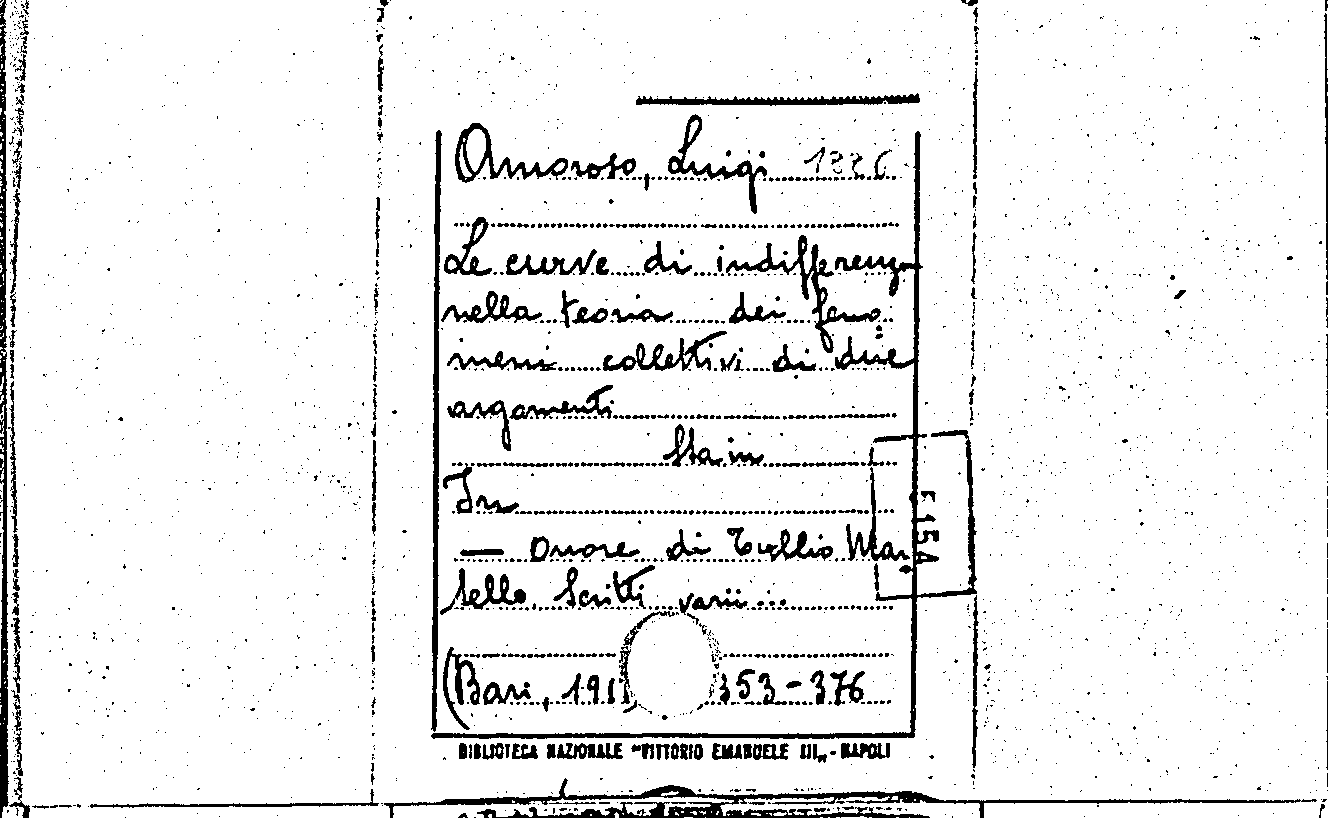 Amoroso, Luigi 1886
Le curve di indifferenza
nella teoria dei feno
meni collettivi di due
argomenti
Sta in
In
— Onore di Tullio Mar
tello. Scritti varii...
(Bari, 191 353-376
BIBLIOTECA NAZIONALE "VITTORIO EMANUELE III„ - NAPOLI
E 15 A